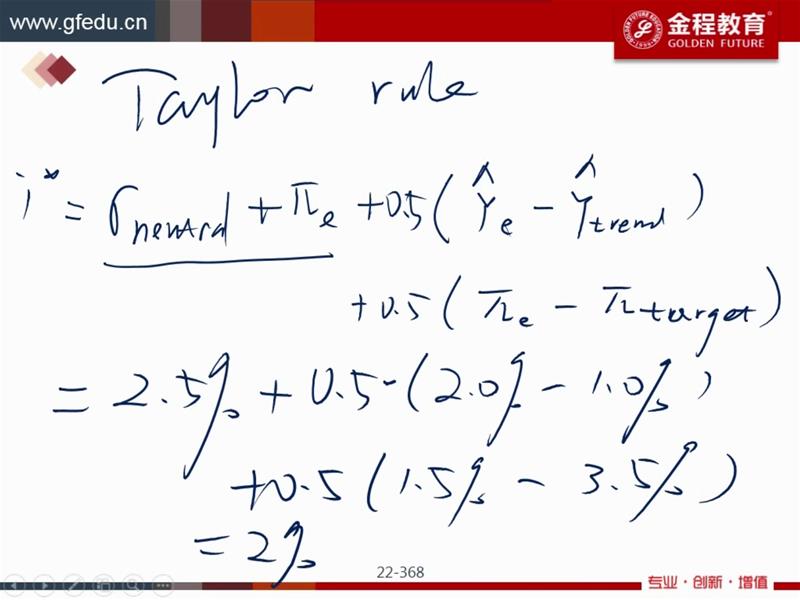 www.gfedu.cn
金程教育
GOLDEN FUTURE
Taylor rule
i* = r_neutral + π_e + 0.5 ( Ŷ_e − Ŷ_trend )
+ 0.5 ( π_e − π_target )
= 2.5% + 0.5·(2.0% − 1.0%)
+0.5 (1.5% − 3.5%)
= 2%
22-368
专业·创新·增值